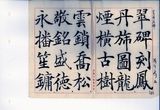 翠碑刻鳳
丹旆圖龍
煙橫古樹
雲鎖喬松
敬銘盛德
永播笙鏞